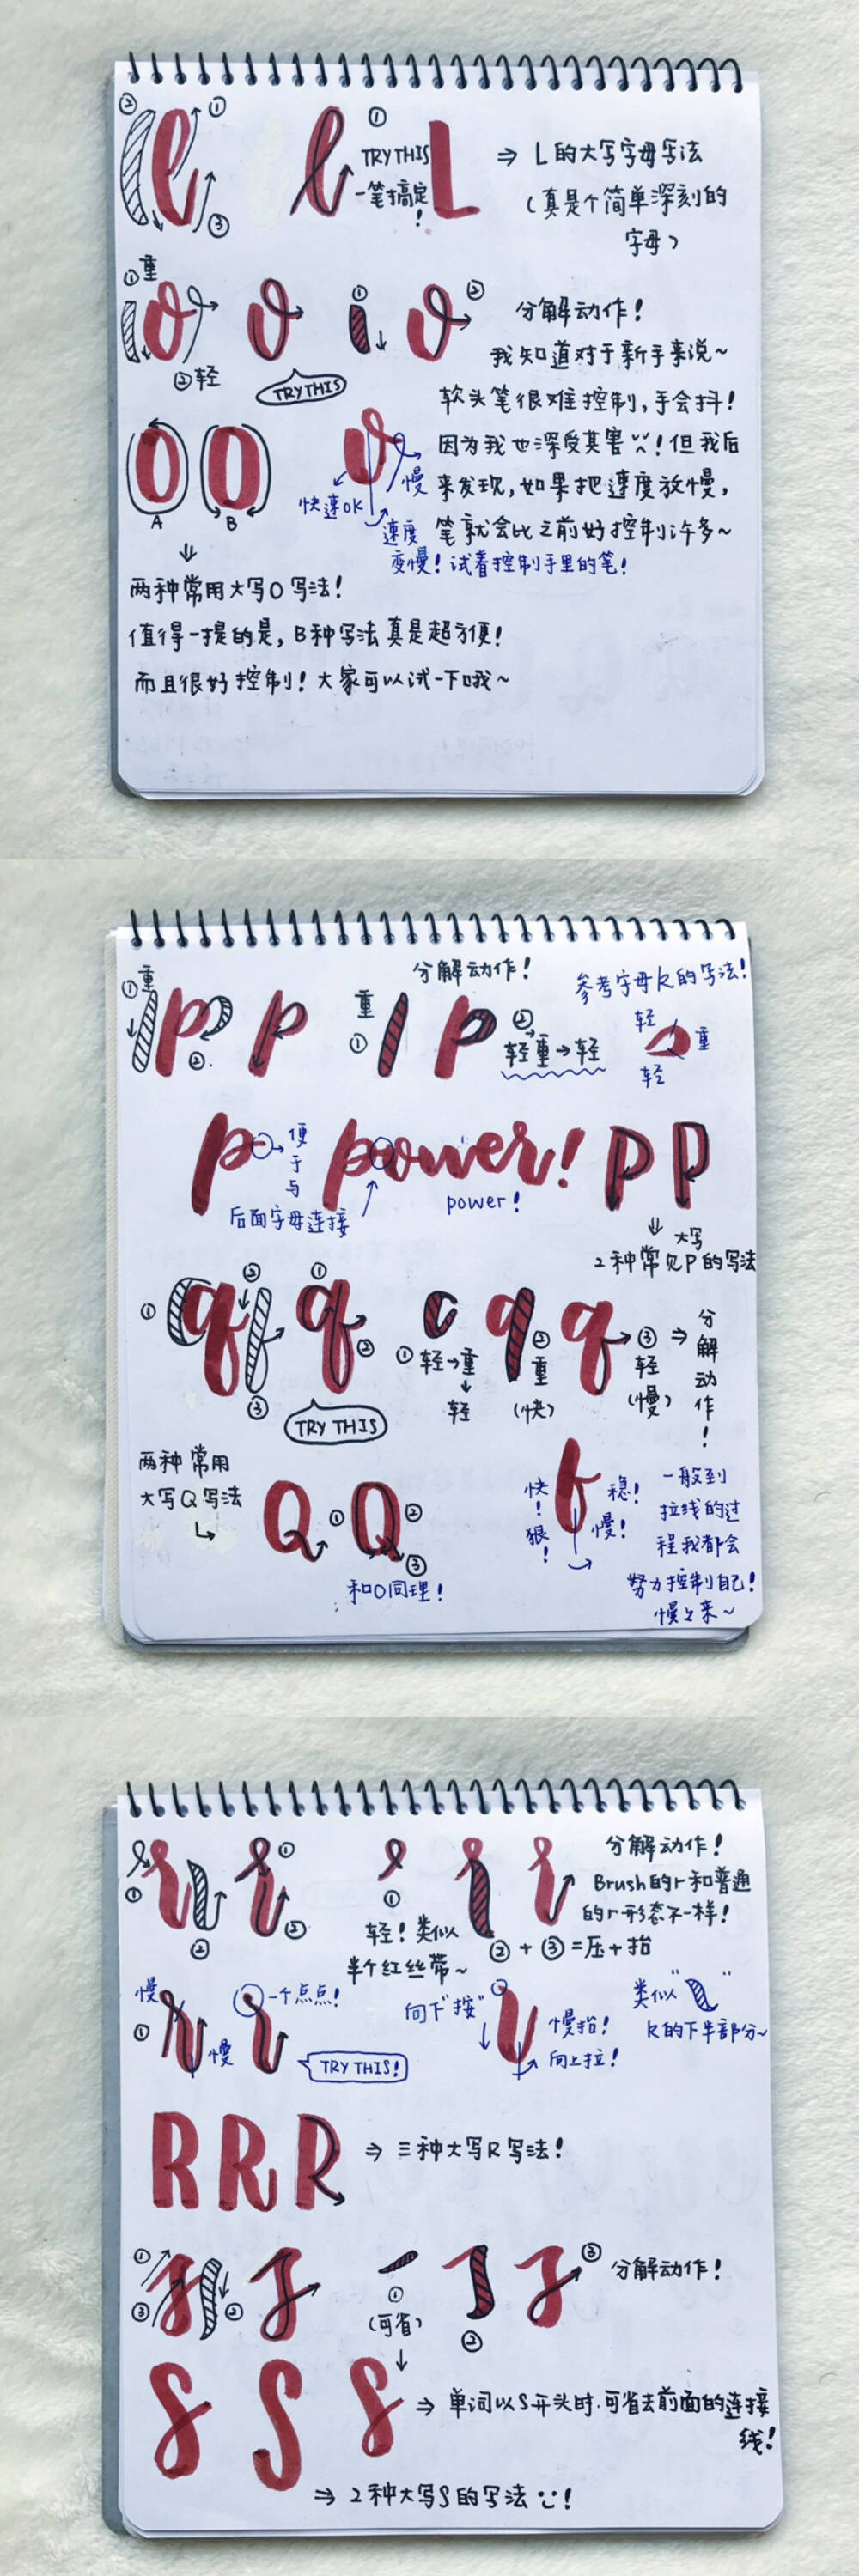 ② ℓ ①
③
ℓ ① TRY THIS
一笔搞定!
L ⇒ L的大写字母写法
(真是个简单深刻的
字母)
①重 o
②轻
o ① o ②
TRY THIS
分解动作!
我知道对于新手来说~
软头笔很难控制,手会抖!
因为我也深受其害!但我后
来发现,如果把速度放慢,
笔就会比之前好控制许多~
O O
A B
o
快速OK
慢
速度
变慢!试着控制手里的笔!
两种常用大写O写法!
值得一提的是,B种写法真是超方便!
而且很好控制!大家可以试一下哦~
①重 p p
②
分解动作!
重
① p ②
轻重→轻
参考字母k的写法!
轻
重
轻
p 便于与
后面字母连接
power!
power!
P P
大写
2种常见P的写法
① q ②
③
① q ②
TRY THIS
①轻→重
↓
轻
q ②
重
(快)
q ③
轻
(慢)
⇒ 分解动作!
两种常用
大写Q写法
Q ① Q ②
③
和O同理!
快!
狠!
稳!
慢!
一般到
拉线的过
程我都会
努力控制自己!
慢慢来~
① r ②
r ①
②
①
轻!类似
半个红丝带~
② + ③ = 压+抬
分解动作!
Brush的r和普通
的r形态不一样!
慢
① r 慢
r 一个点点!
TRY THIS!
向下"按"
慢抬!
向上拉!
类似" "
k的下半部分~
R R R ⇒ 三种大写R写法!
① s
③ ②
s
①
(可省)
②
s ③ 分解动作!
S S s ⇒ 单词以S开头时.可省去前面的连接
线!
⇒ 2种大写S的写法!